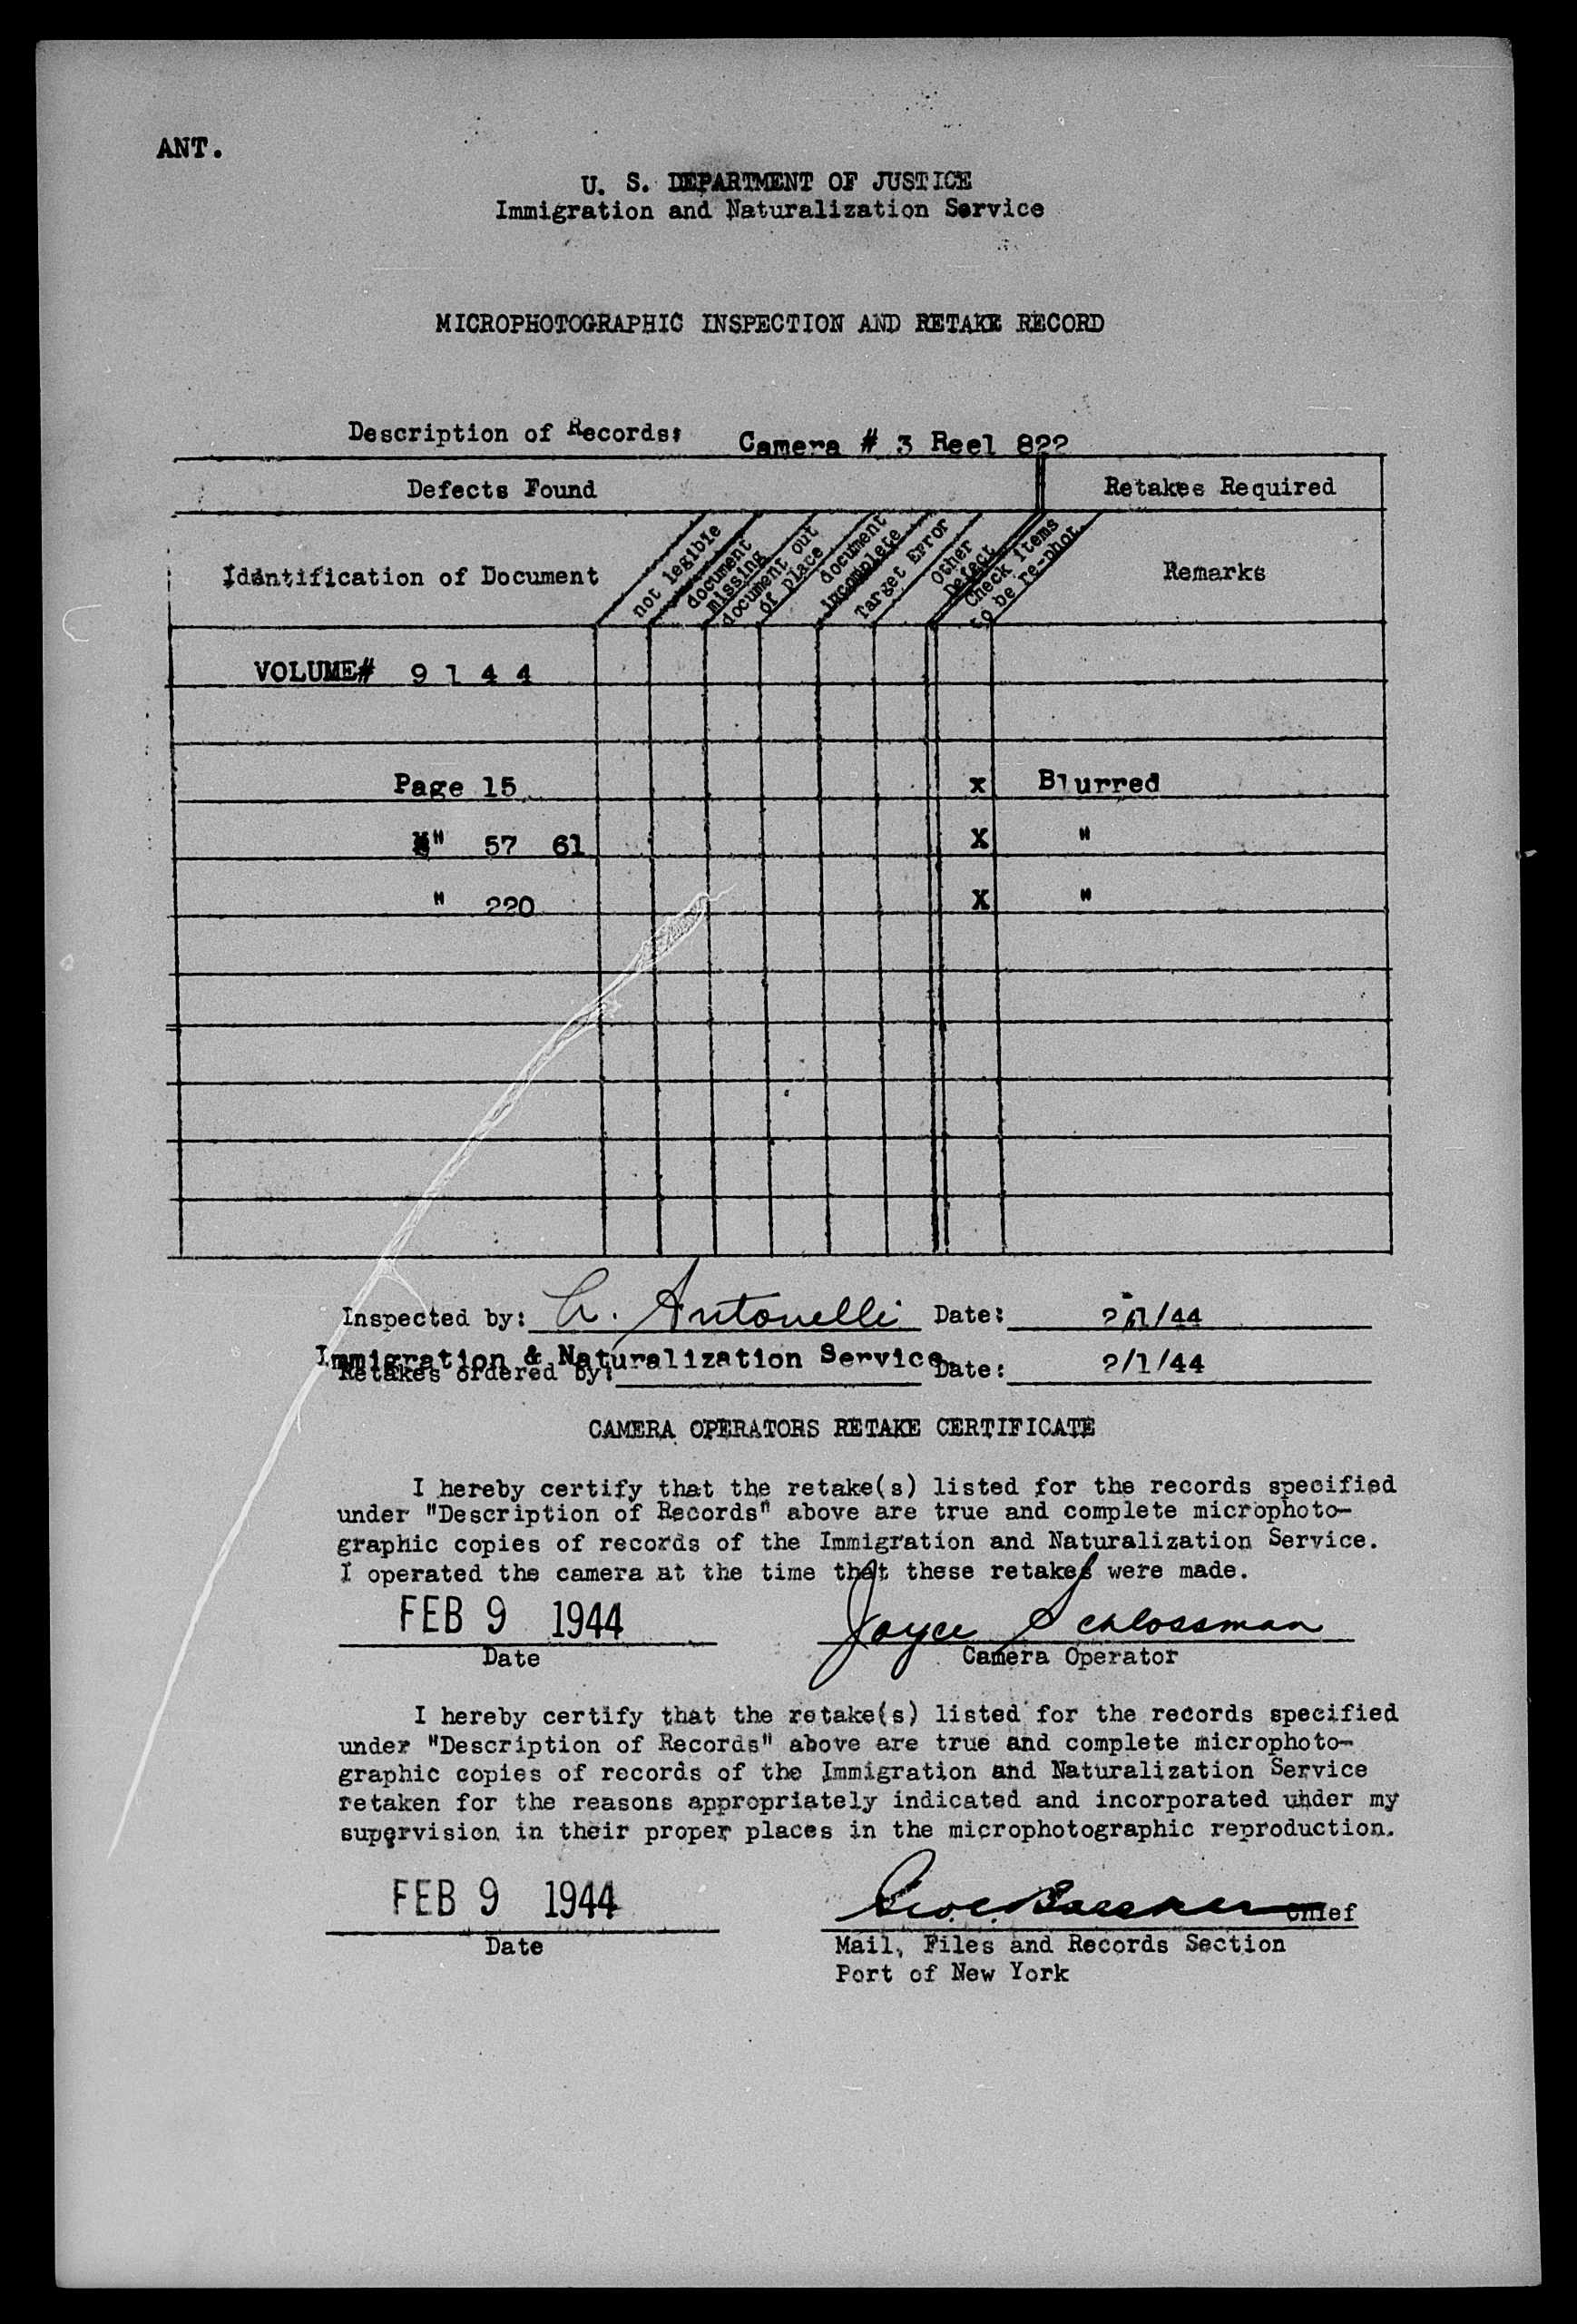 ANT.
U. S. DEPARTMENT OF JUSTICE
Immigration and Naturalization Service
MICROPHOTOGRAPHIC INSPECTION AND RETAKE RECORD
Description of Records: Camera # 3 Reel 822
Defects Found Retakes Required
Identification of Document
not legible
document missing
document out of place
document incomplete
Target Error
Other Defect
Check items to be re-phot.
Remarks
VOLUME# 9 1 4 4
Page 15 x Blurred
" 57 61 X "
" 220 X "
Inspected by: Antonelli Date: 2/1/44
Immigration & Naturalization Service
Retakes ordered by: Date: 2/1/44
CAMERA OPERATORS RETAKE CERTIFICATE
I hereby certify that the retake(s) listed for the records specified
under "Description of Records" above are true and complete microphoto-
graphic copies of records of the Immigration and Naturalization Service.
I operated the camera at the time that these retakes were made.
FEB 9 1944 Joyce Schlossman
Date Camera Operator
I hereby certify that the retake(s) listed for the records specified
under "Description of Records" above are true and complete microphoto-
graphic copies of records of the Immigration and Naturalization Service
retaken for the reasons appropriately indicated and incorporated under my
supervision in their proper places in the microphotographic reproduction.
FEB 9 1944 Chief
Date Mail, Files and Records Section
Port of New York